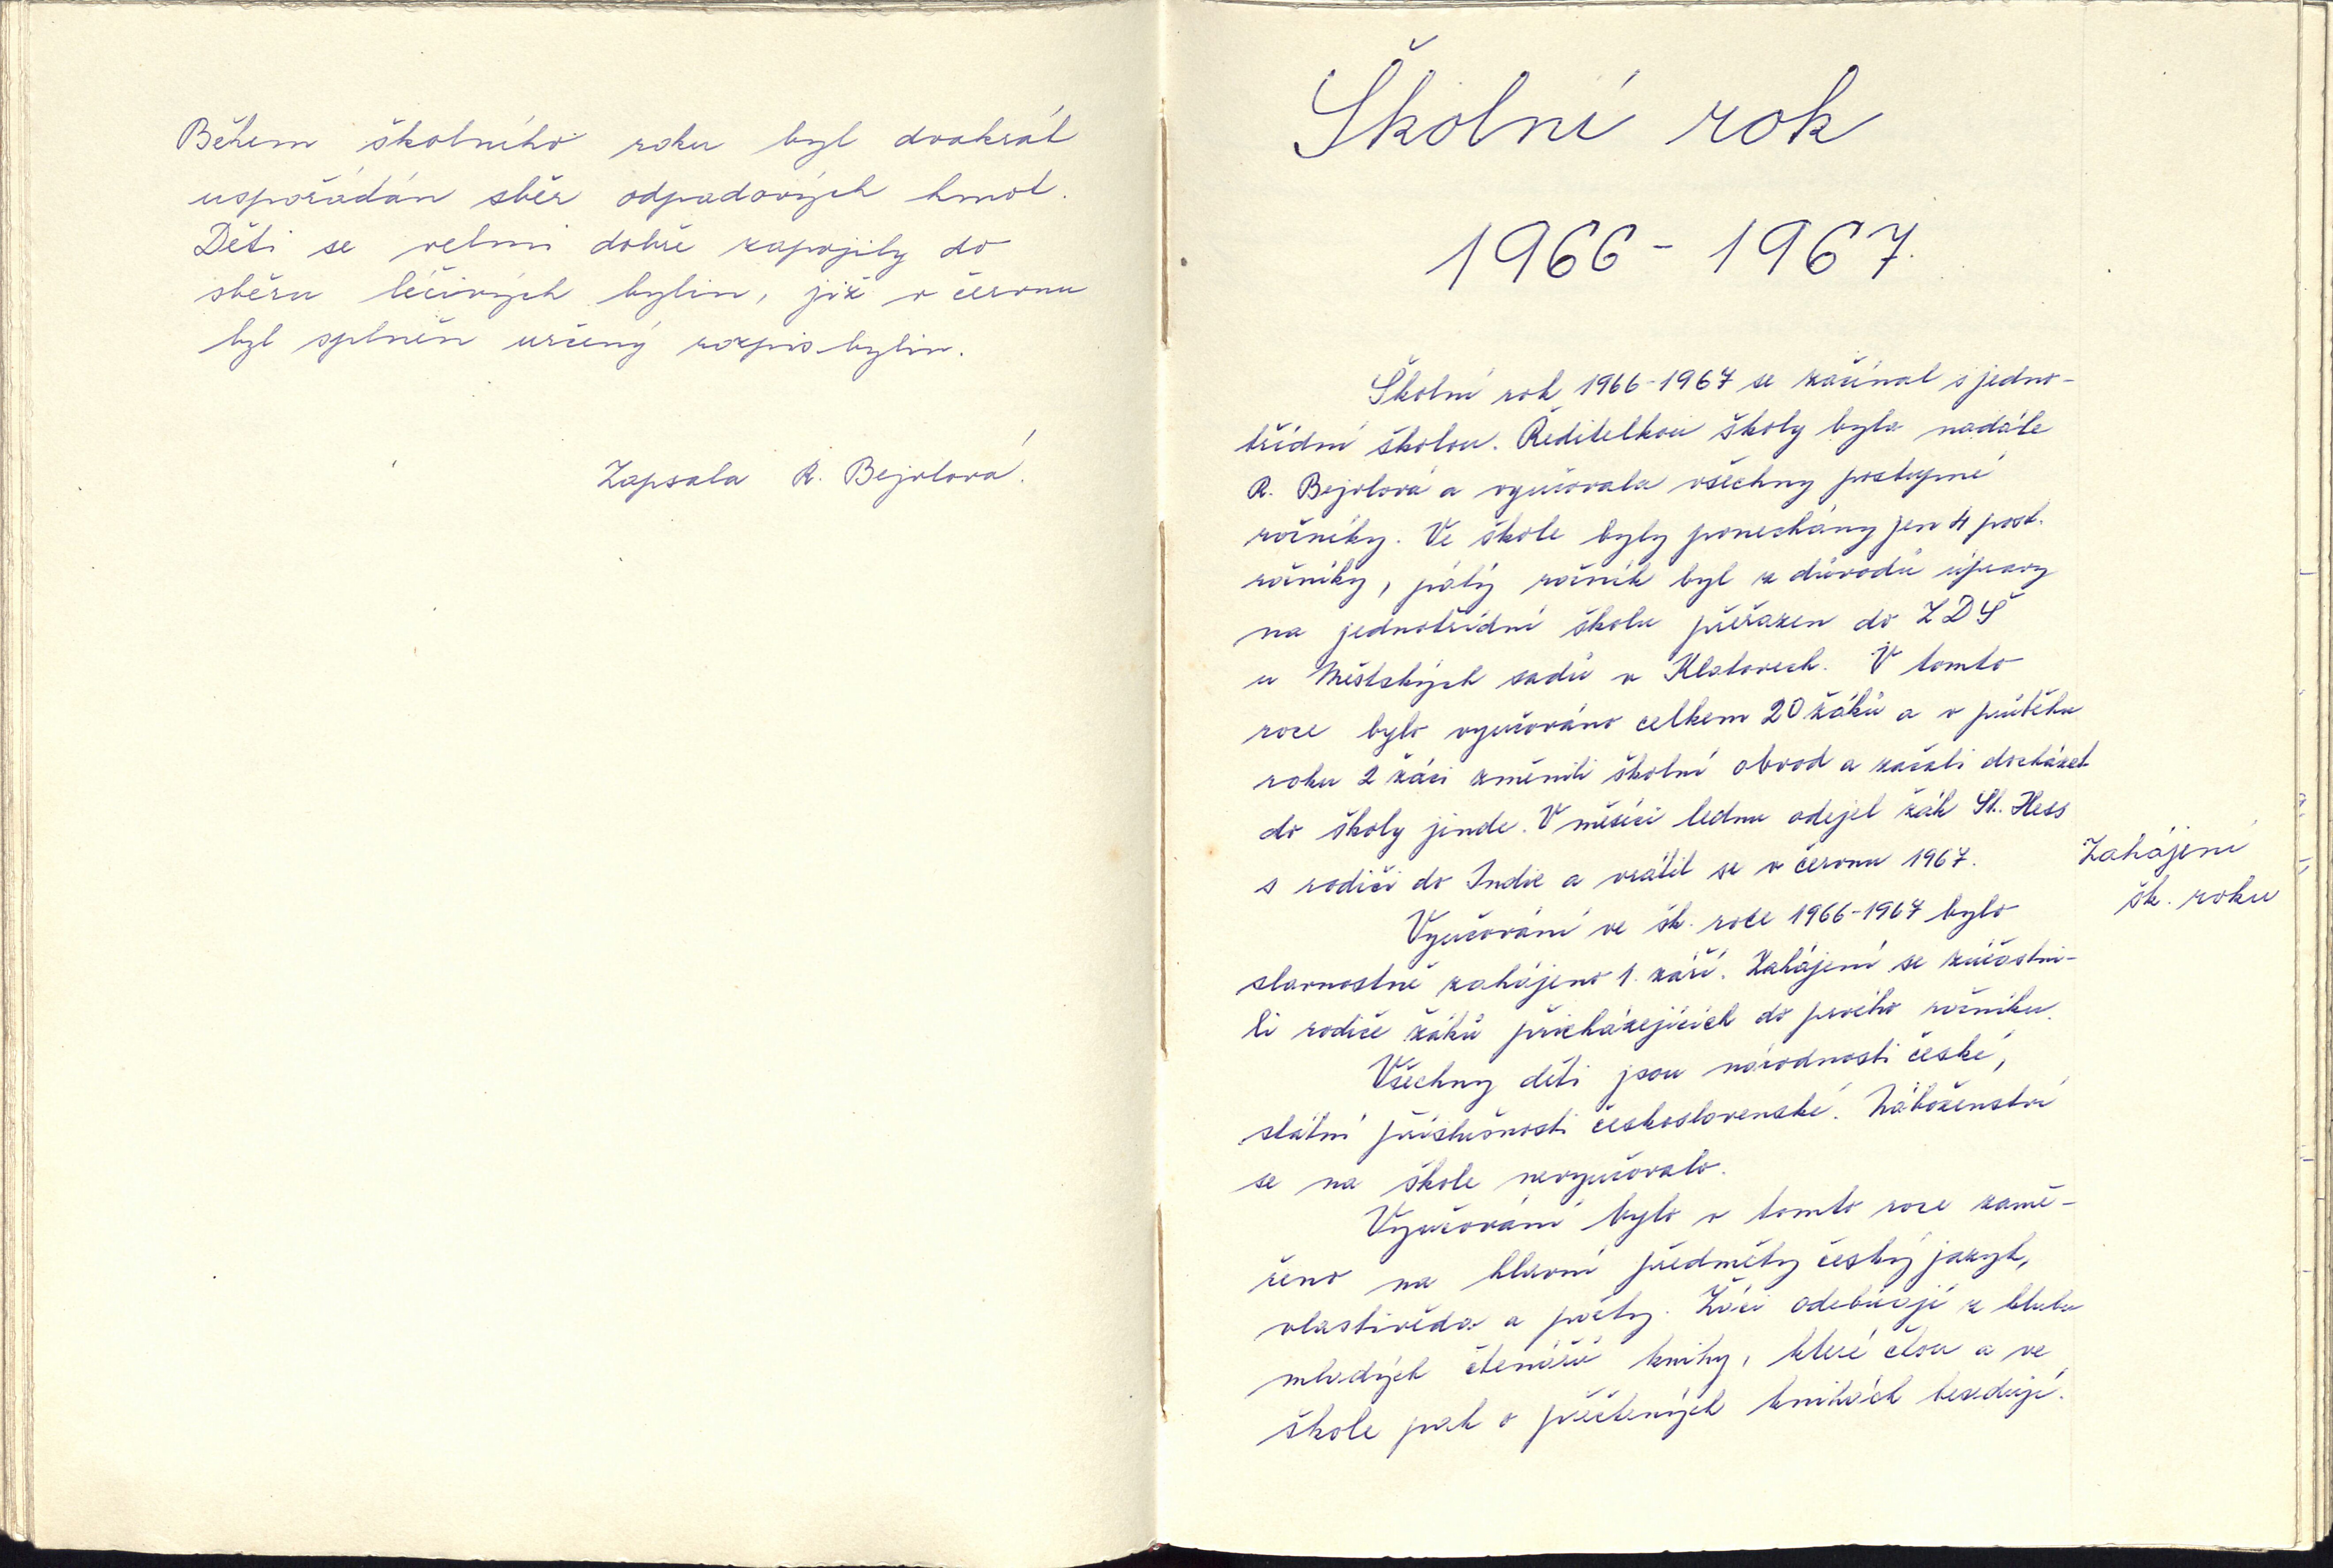 Během školního roku byl dvakrát
uspořádán sběr odpadových hmot.
Děti se velmi dobře zapojily do
sběru léčivých bylin, již v červnu
byl splněn určený rozpis bylin.
Zapsala R. Bejvlová.
Školní rok
1966-1967.
Školní rok 1966-1967 se začínal s jedno-
třídní školou. Ředitelkou školy byla nadále
R. Bejvlová a vyučovala všechny postupné
ročníky. Ve škole byly ponechány jen 4 post.
ročníky, pátý ročník byl z důvodů úpravy
na jednotřídní školu přeřazen do ZDŠ
u Městských sadů v Klatovech. V tomto
roce bylo vyučováno celkem 20 žáků a v průběhu
roku 2 žáci změnili školní obvod a začali docházet
do školy jinde. V měsíci lednu odejel žák St. Hess
s rodiči do Indie a vrátil se v červnu 1967.
Zahájení
šk. roku
Vyučování ve šk. roce 1966-1967 bylo
slavnostně zahájeno 1. září. Zahájení se zúčastni-
li rodiče žáků přicházejících do prvého ročníku.
Všechny děti jsou národnosti české,
státní příslušnosti československé. Náboženství
se na škole nevyučovalo.
Vyučování bylo v tomto roce zamě-
řeno na hlavní předměty český jazyk,
vlastivěda a počty. Žáci odebírají z klubu
mladých čtenářů knihy, které čtou a ve
škole pak o přečtených knihách besedují.